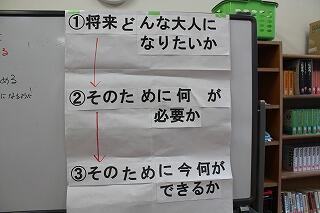 ①将来どんな大人に
なりたいか
②そのために何が
必要か
③そのために今何が
できるか
める